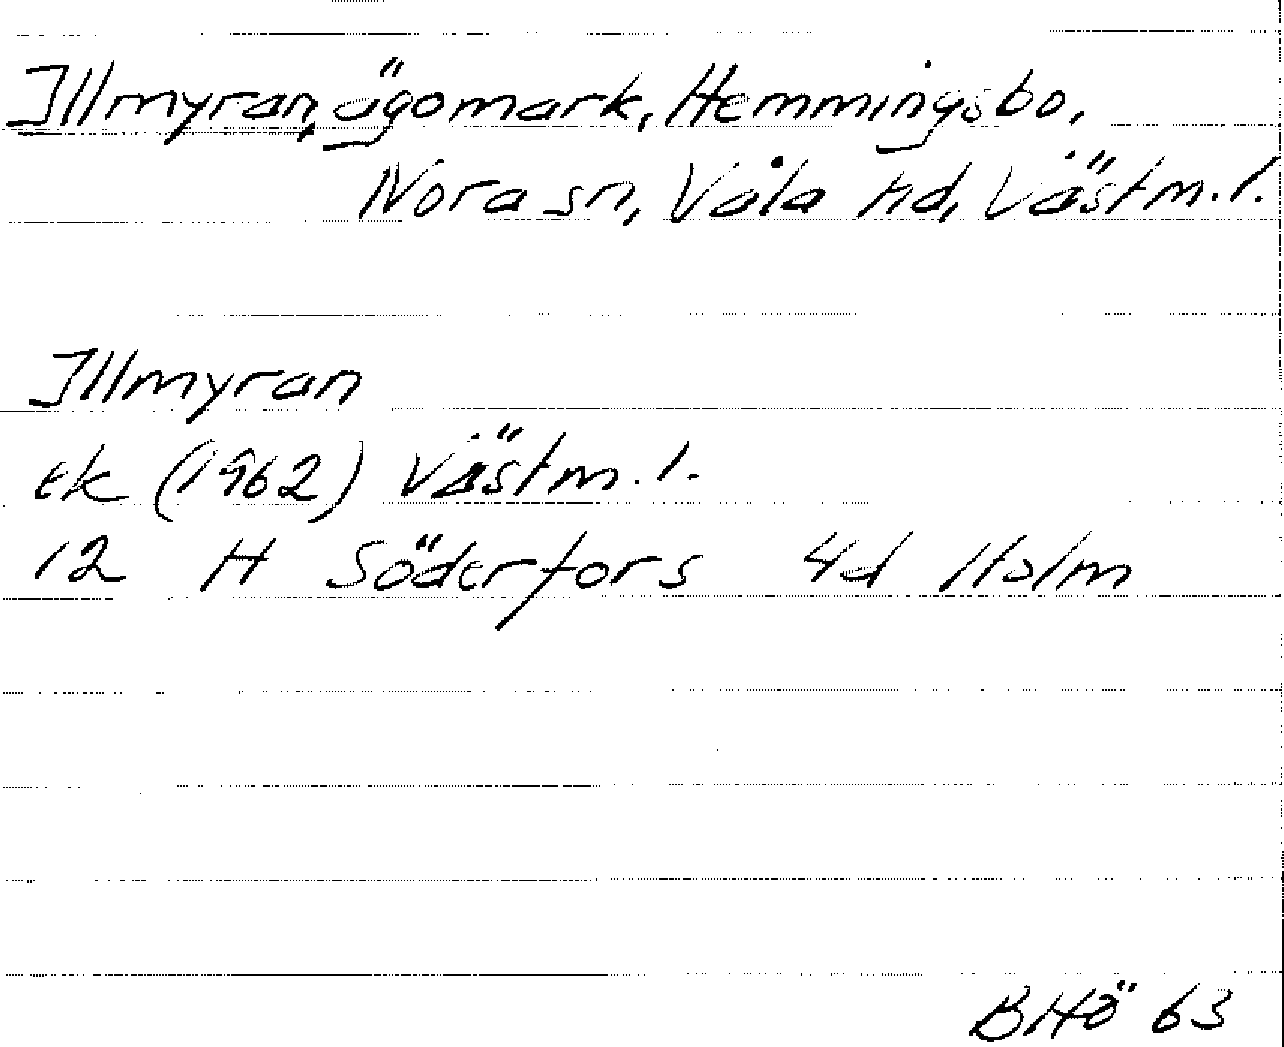 Illmyran, ägomark, Hemmingsbo,
Nora sn, Våla hd, Västm. l.
Illmyran
ek (1962) Västm. l.
12 H Söderfors 4d Holm
BHö 63